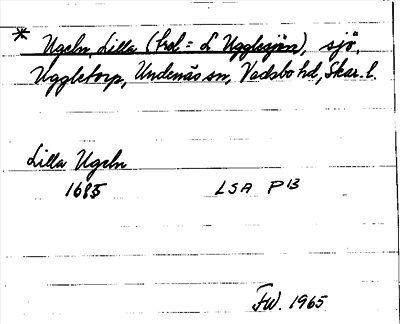 * Ugeln, Lilla (trol = L Ugglesjön), sjö,
Uggletorp, Undenäs sn, Vadsbo hd, Skar. l.
Lilla Ugeln
1685 LSA P13
FW. 1965